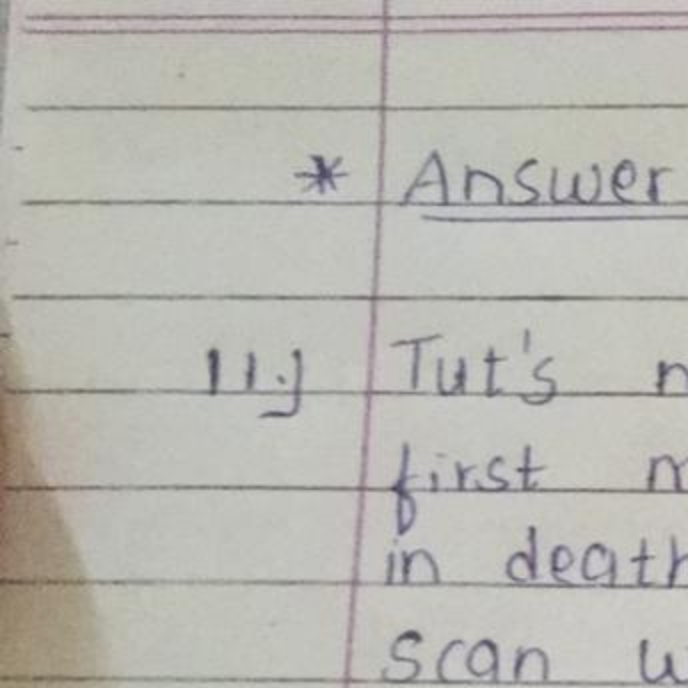 * Answer
11.) Tut's
first
in death
scan